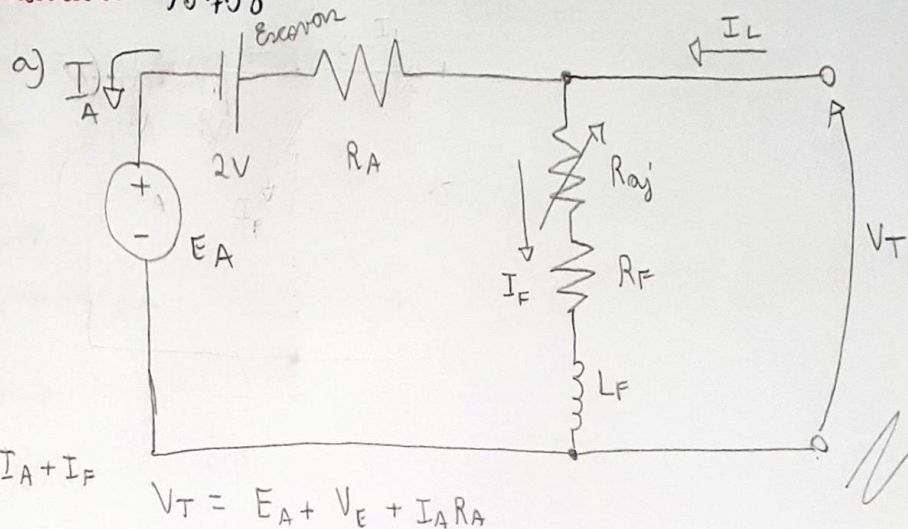 a) I_A
Escovas
I_L
2V
R_A
R_aj
+
-
E_A
I_F
R_F
V_T
L_F
I_A + I_F
V_T = E_A + V_E + I_A R_A